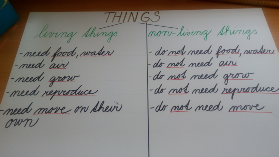 THINGS
living things
-need food, water
-need air
-need grow
-need reproduce
-need move on their
own
non-living things
-do not need food, water
-do not need air
-do not need grow
-do not need reproduce
-do not need move